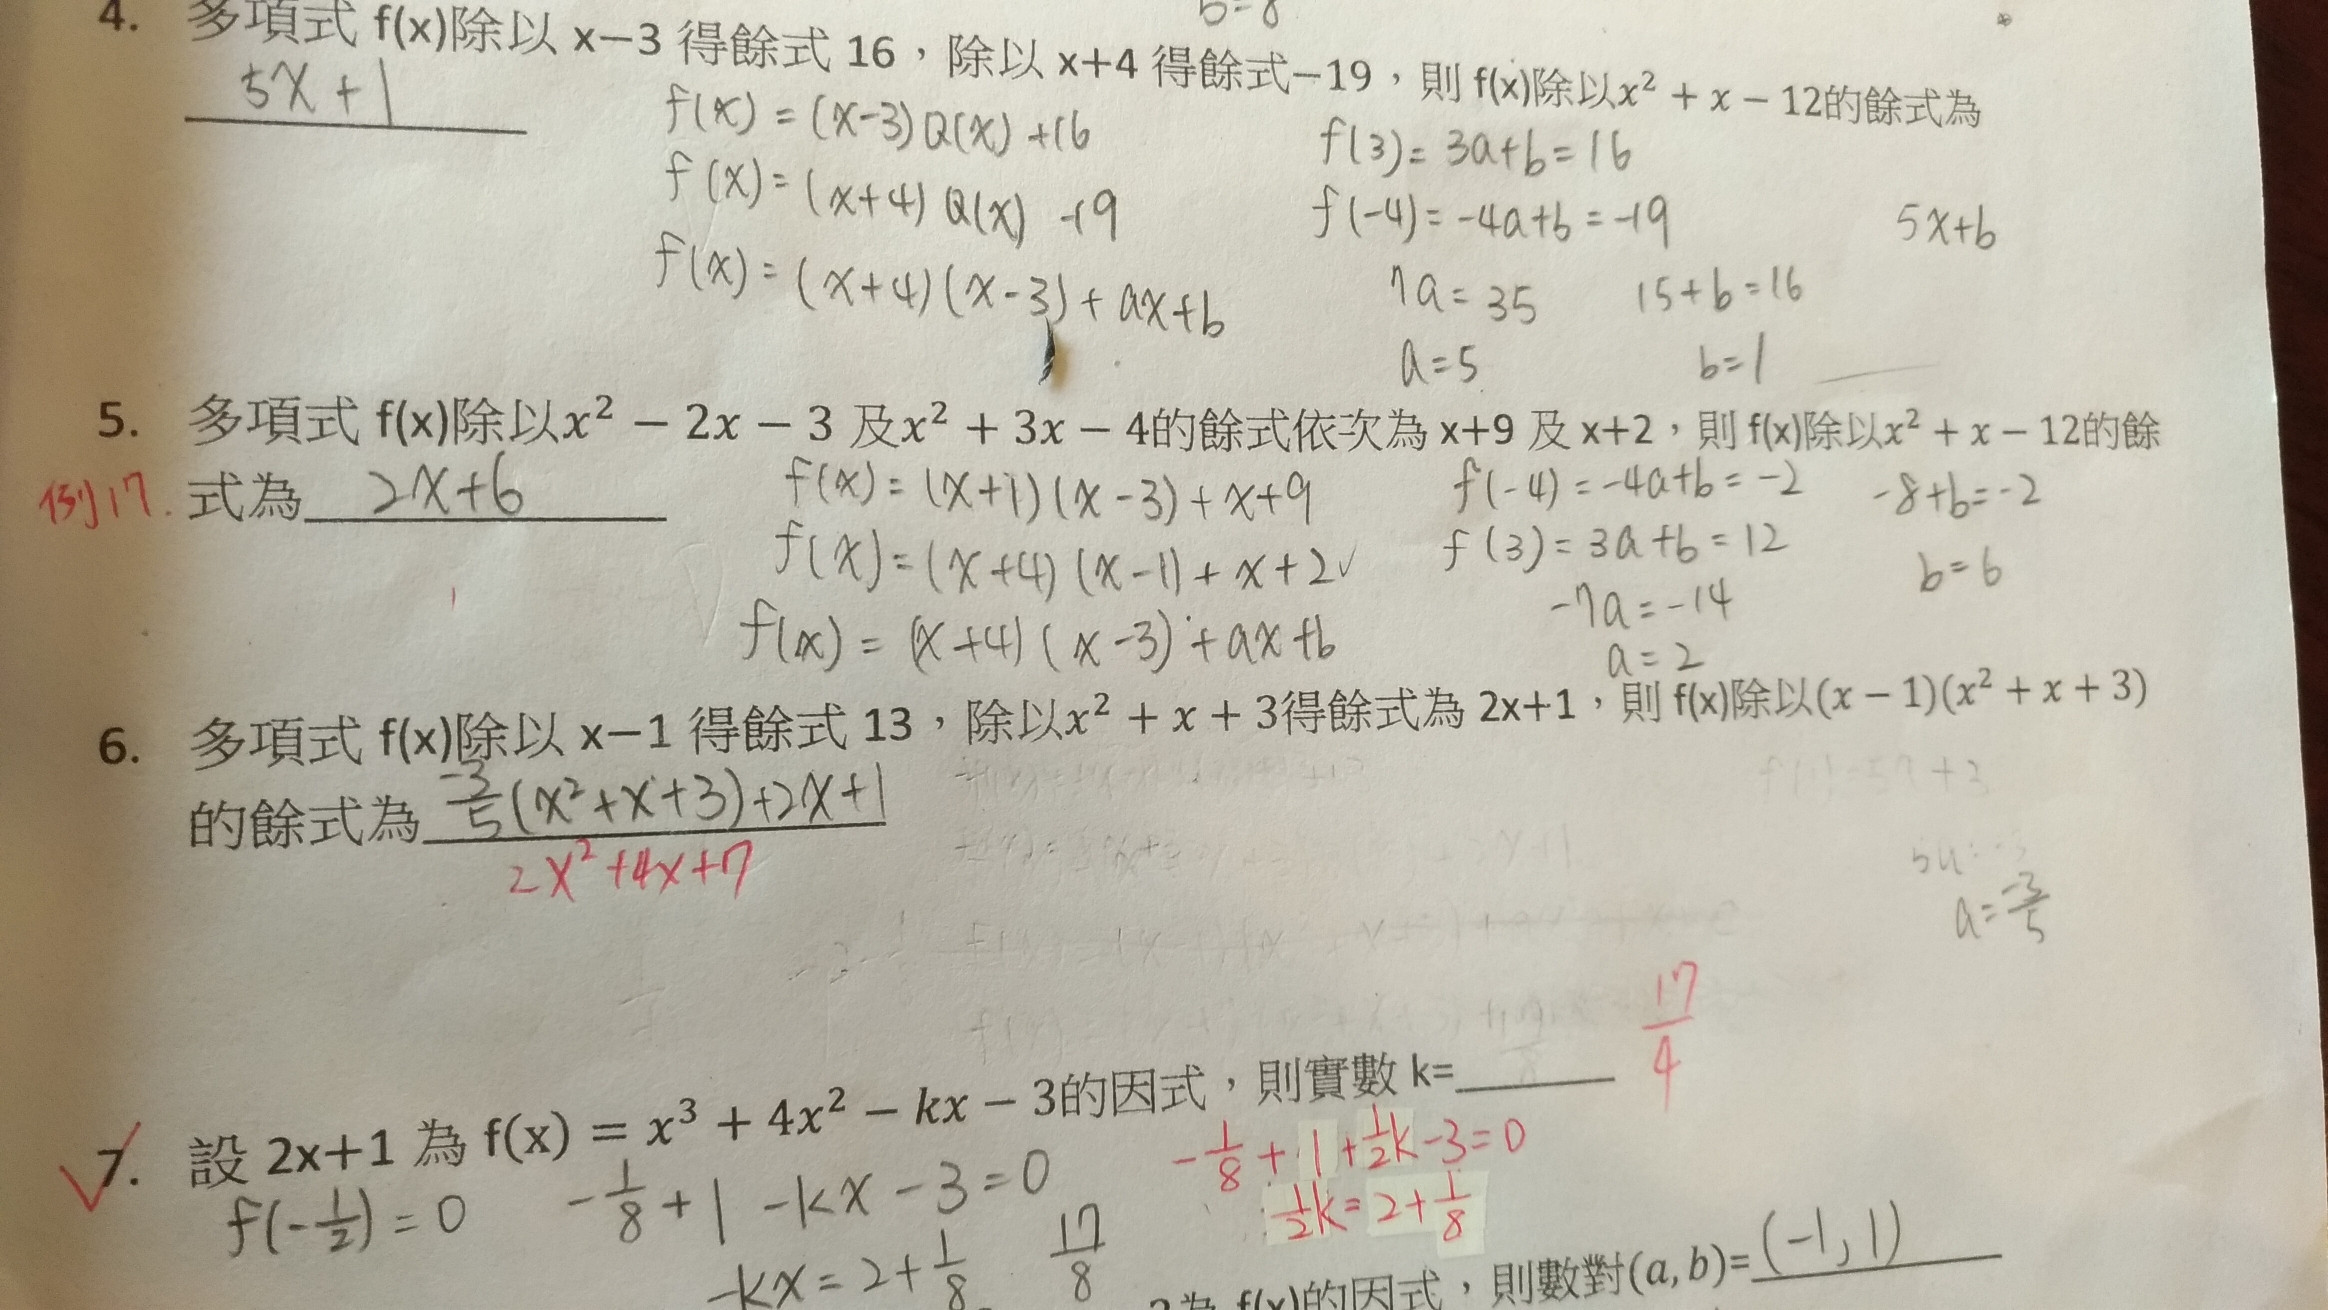 b=8
4. 多項式 f(x)除以 x−3 得餘式 16，除以 x+4 得餘式−19，則 f(x)除以x² + x − 12的餘式為
5x+1
f(x) = (x-3)Q(x) +16
f(x) = (x+4) Q(x) -19
f(x) = (x+4)(x-3) + ax+b
f(3) = 3a+b = 16
f(-4) = -4a+b = -19
7a = 35
a=5
15+b=16
b=1
5x+b
5. 多項式 f(x)除以x² − 2x − 3 及x² + 3x − 4的餘式依次為 x+9 及 x+2，則 f(x)除以x² + x − 12的餘
例17. 式為 2x+6
f(x) = (x+1)(x-3)+x+9
f(x) = (x+4)(x-1)+x+2✓
f(x) = (x+4)(x-3)+ax+b
f(-4) = -4a+b = -2
f(3) = 3a+b = 12
-7a = -14
a=2
-8+b=-2
b=6
6. 多項式 f(x)除以 x−1 得餘式 13，除以x² + x + 3得餘式為 2x+1，則 f(x)除以(x − 1)(x² + x + 3)
的餘式為 -3/5(x²+x+3)+2x+1
2x²+4x+7
a=-3/5
17/4
✓7. 設 2x+1 為 f(x) = x³ + 4x² − kx − 3的因式，則實數 k=
f(-1/2) = 0
-1/8+1-kx-3=0
-kx=2+1/8
17/8
-1/8+1+1/2k-3=0
1/2k=2+1/8
f(x)的因式，則數對(a, b)=(-1,1)